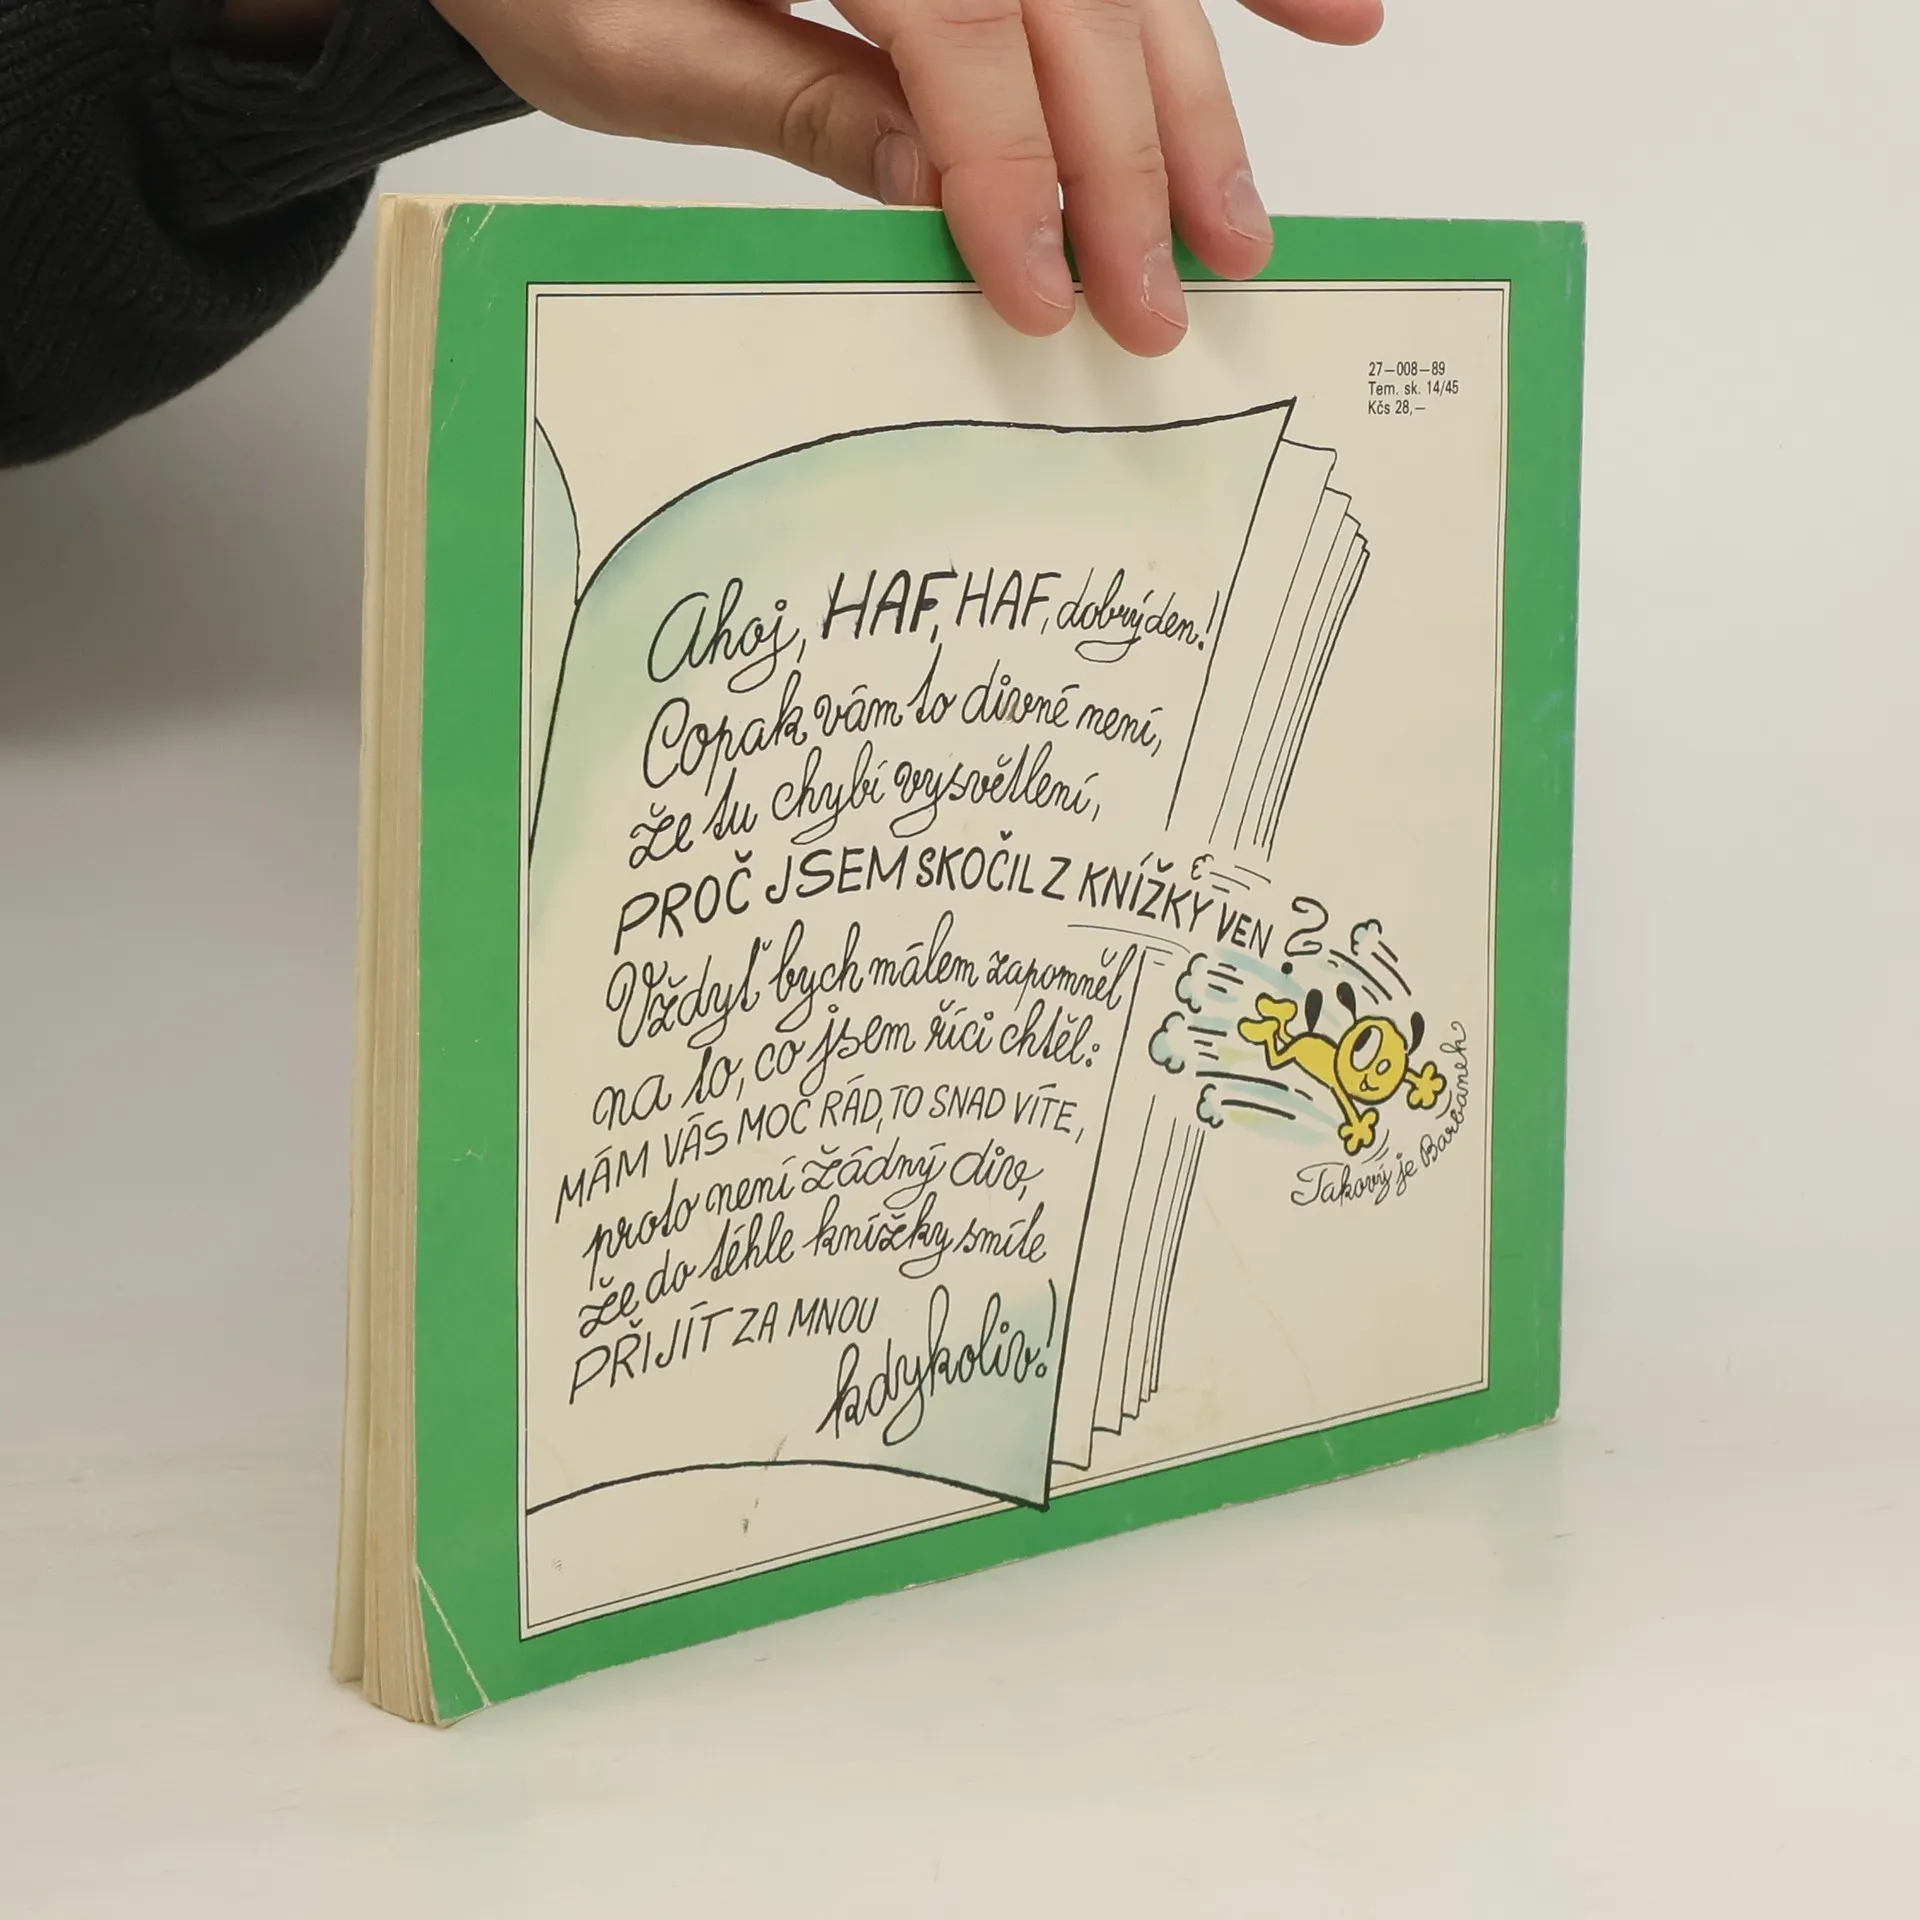 27—008—89
Tem. sk. 14/45
Kčs 28,—
Ahoj, HAF, HAF, dobrý den!
Copak vám to divné není,
že tu chybí vysvětlení,
PROČ JSEM SKOČIL Z KNÍŽKY VEN?
Vždyť bych málem zapomněl
na to, co jsem říci chtěl:
MÁM VÁS MOC RÁD, TO SNAD VÍTE,
proto není žádný div,
že do téhle knížky smíte
PŘIJÍT ZA MNOU
kdykoliv!
Takový je Barbánek